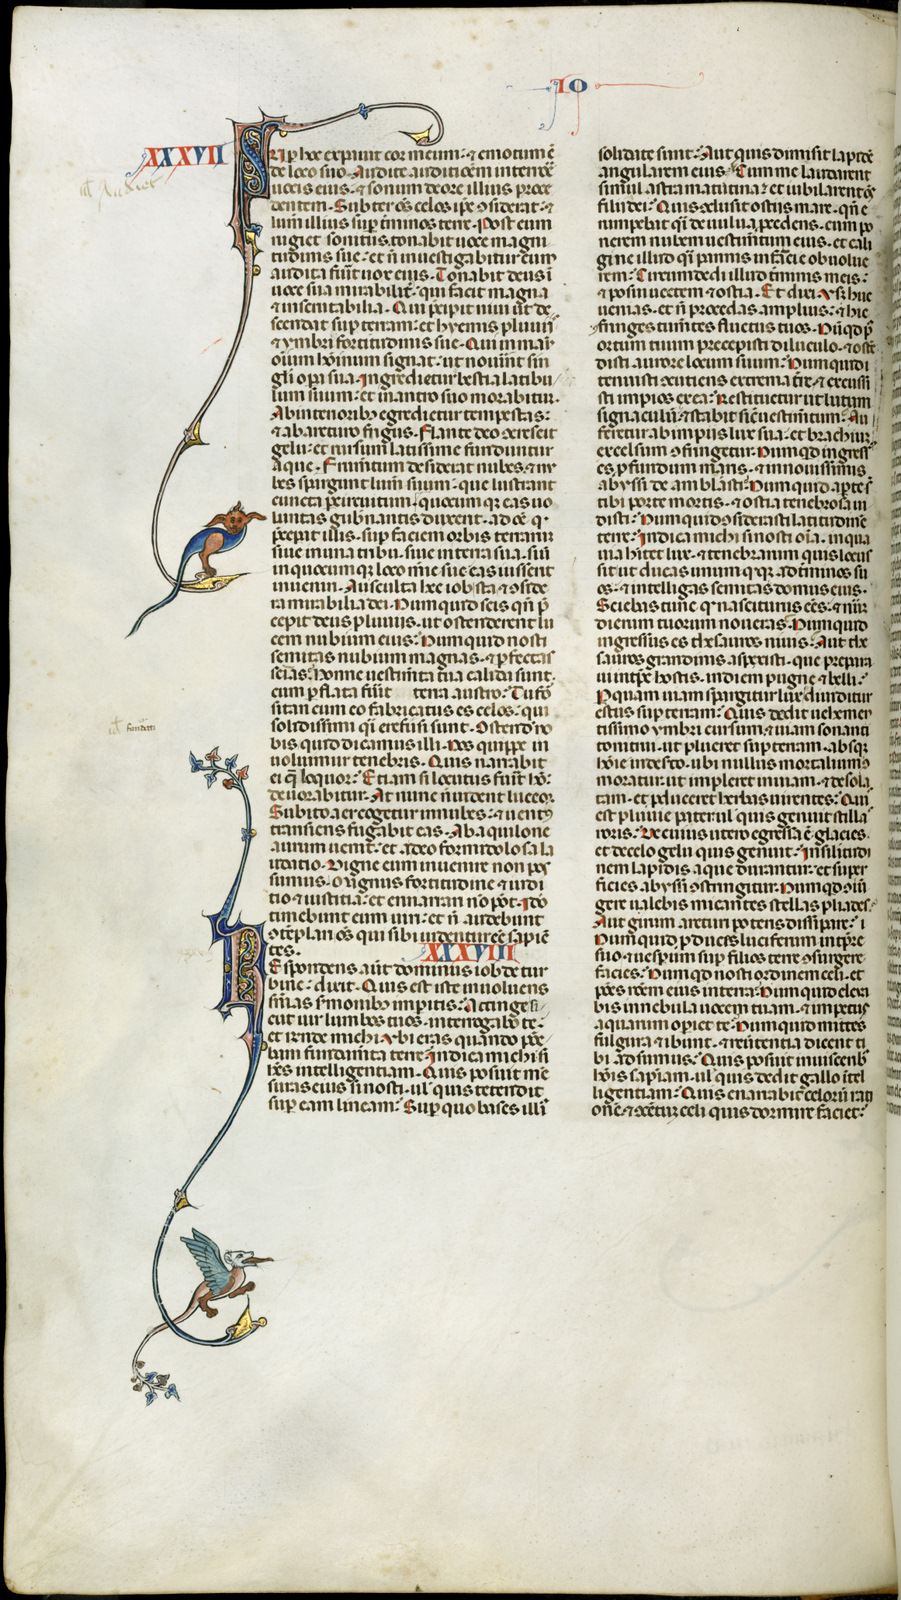 IO
XXXVII
SUp hec expauit cor meum: ⁊ emotum ē
de loco suo. Audite auditiōem in terrore
uocis eius: ⁊ sonum de ore illius proce
dentem. Subter oēs celos ip̄e ꝯsiderat: ⁊
lumē illius sup t̄minos terre. Post eum
rugiet sonitus, tonabit uoce magni
tudinis sue: et ñ inuestigabitur cum
audita fuīt uox eius. Tonabit deus ī
uoce sua mirabilit̄: qui facit magna
⁊ inscrutabilia. Qui p̄cipit niui ut de
scendat sup terram: et hyemis pluuiis
⁊ ymbri fortitudinis sue. Qui in ma
nu oīum hoīnum signat: ut nouīnt sin
gli opa sua. Ingredietur bestia latibu
lum suum: et in antro suo morabitur.
Ab interiorib; egredietur tempestas:
⁊ ab arcturo frigus. Flante deo ꝯcrescit
gelu: et rursum latissime funduntur
aque. Frumentum desiderat nubes: ⁊ nu
bes spargunt lumē suum: que lustrant
cuncta per circuitum, quocumq; eas uo
luntas gub̄nantis duxerit. ad oē q
p̄cepit illis. sup faciem orbis terrarū
siue in una tribu. siue in terra sua. siue
in quocumq; loco m̄ie sue eas iusserit
inueniri. Ausculta hec iob sta ⁊ ꝯside
ra mirabilia dei. Numquid scis qn̄ p̄
cepit deus pluuiis. ut ostenderent lu
cem nubium eius: Numquid nosti
semitas nubium magnas. ⁊ p̄fectas
scias: Nonne uestimēta tua calida sunt.
cum p̄flata fuīit terra austro: Tu for
sitan cum eo fabricatus es celos: qui
solidissimi q̄i ere fusi sunt. Ostende no
bis quid dicamus illi. Nos quippe in
uoluimur tenebris. Quis narrabit
ei q̄ loquor: Etiam si locutus fuīt hō:
deuorabitur. At nunc ñ uident lucem:
Subito aer cogetur in nubes: ⁊ uentꝰ
transiens fugabit eas. Ab aquilone
aurum uenit: et a deo formidolosa la
udatio. Digne eum inuenire non pos
sumus. Magnus fortitudine ⁊ iudi
tio ⁊ iustitia: et enarrari nō pōt. Ideo
timebunt eum uiri: et ñ audebunt
ꝯtēplari oēs qui sibi uidentur eē sapiē
tes. XXXVIII
REspondens aūt dominus iob de tur
bine: dixit. Quis est iste inuoluens
sn̄ias s̄monib; imp̄itis: Accinge si
cut uir lumbos tuos. interrogabo te:
et r̄nde michi. Vbi eras quando pōe
bam fundamēta terre: Indica michi si
h̄es intelligentiam. Quis posuit me
suras eius si nosti. ul' quis tetendit
sup eam lineam: Sup quo bases illiꝰ
solidate sunt: Aut quis dimisit lapidē
angularem eius: Cum me laudarent
simul astra matutina: et iubilarent oēs
filii dei: Quis ꝯclusit ostiis mare. qn̄ e
rumpebat q̄i de uulua p̄cedens. cum po
nerem nubem uestimētum eius. et cali
gine illud q̄i pannis infātie obuolue
rem: Circumdedi illud t̄minis meis:
⁊ posui uectem ⁊ ostia. Et dixi. Vsꝗ huc
uenias. et ñ procedas amplius: ⁊ hic
ꝯfringes tumētes fluctus tuos. Nūqd p̄
ortum tuum precepisti diluculo. ⁊ ostē
disti aurore locum suum: Numquid
tenuisti ꝯcutiens extrema terre. ⁊ excussi
sti impios ex ea: Restituetur ut lutum
signaculū: ⁊ stabit sic̄ uestimētum: Au
feretur ab impiis lux sua: et brachium
excelsum ꝯfringetur. Numqd ingress
es p̄fundum maris. ⁊ in nouissimis
abyssi deambulasti: Numquid apte sūt
tibi porte mortis. ⁊ ostia tenebrosa ui
disti: Numquid ꝯsiderasti latitudinē
terre: Indica michi si nosti oīa. in qua
uia h̄itet lux. ⁊ tenebrarum quis locus
sit: ut ducas unumqdq; ad t̄minos su
os. ⁊ intelligas semitas domus eius.
Sciebas tunc q nasciturus eēs: ⁊ nūm
dierum tuorum noueras: Numquid
ingressus es thesauros niuis. Aut the
sauros grandinis aspexisti. que prepara
ui in tp̄e hostis. in diem pugne ⁊ belli:
Per quam uiam spargitur lux: diuiditur
estus sup terram: Quis dedit uehemen
tissimo ymbri cursum. ⁊ uiam sonanti
tonitrui. ut plueret sup terram. absq;
hoīe in deserto. ubi nullus mortalium ꝯ
moratur: ut impleret inuiam. ⁊ desola
tam. et p̄duceret herbas uirentes: Quis
est pluuie pater: ul' quis genuit stillas
roris: De cuius utero egressa ē glacies.
et de celo gelu quis genuit: In similitudi
nem lapidis aque durantur: et super
ficies abyssi ꝯstringitur. Numqd ꝯiū
gere ualebis micantes stellas pliades:
Aut girum arcturi poteris dissipare:
Numquid p̄ducis luciferum in tp̄re
suo. ⁊ uesperum sup filios terre ꝯsurgere
facies: Numqd nosti ordinem celi. et
pōes rōem eius in terra: Numquid eleua
bis in nebula uocem tuam. ⁊ impetus
aquarum opiet te: Numquid mittes
fulgura ⁊ ibunt. ⁊ reūtentia dicent ti
bi adsumus: Quis posuit in uiscerib;
hoīis sapīam. ul' quis dedit gallo ītel
ligentiam: Quis enarrabit celorū rati
onē. ⁊ ꝯcētum celi quis dormire faciet: